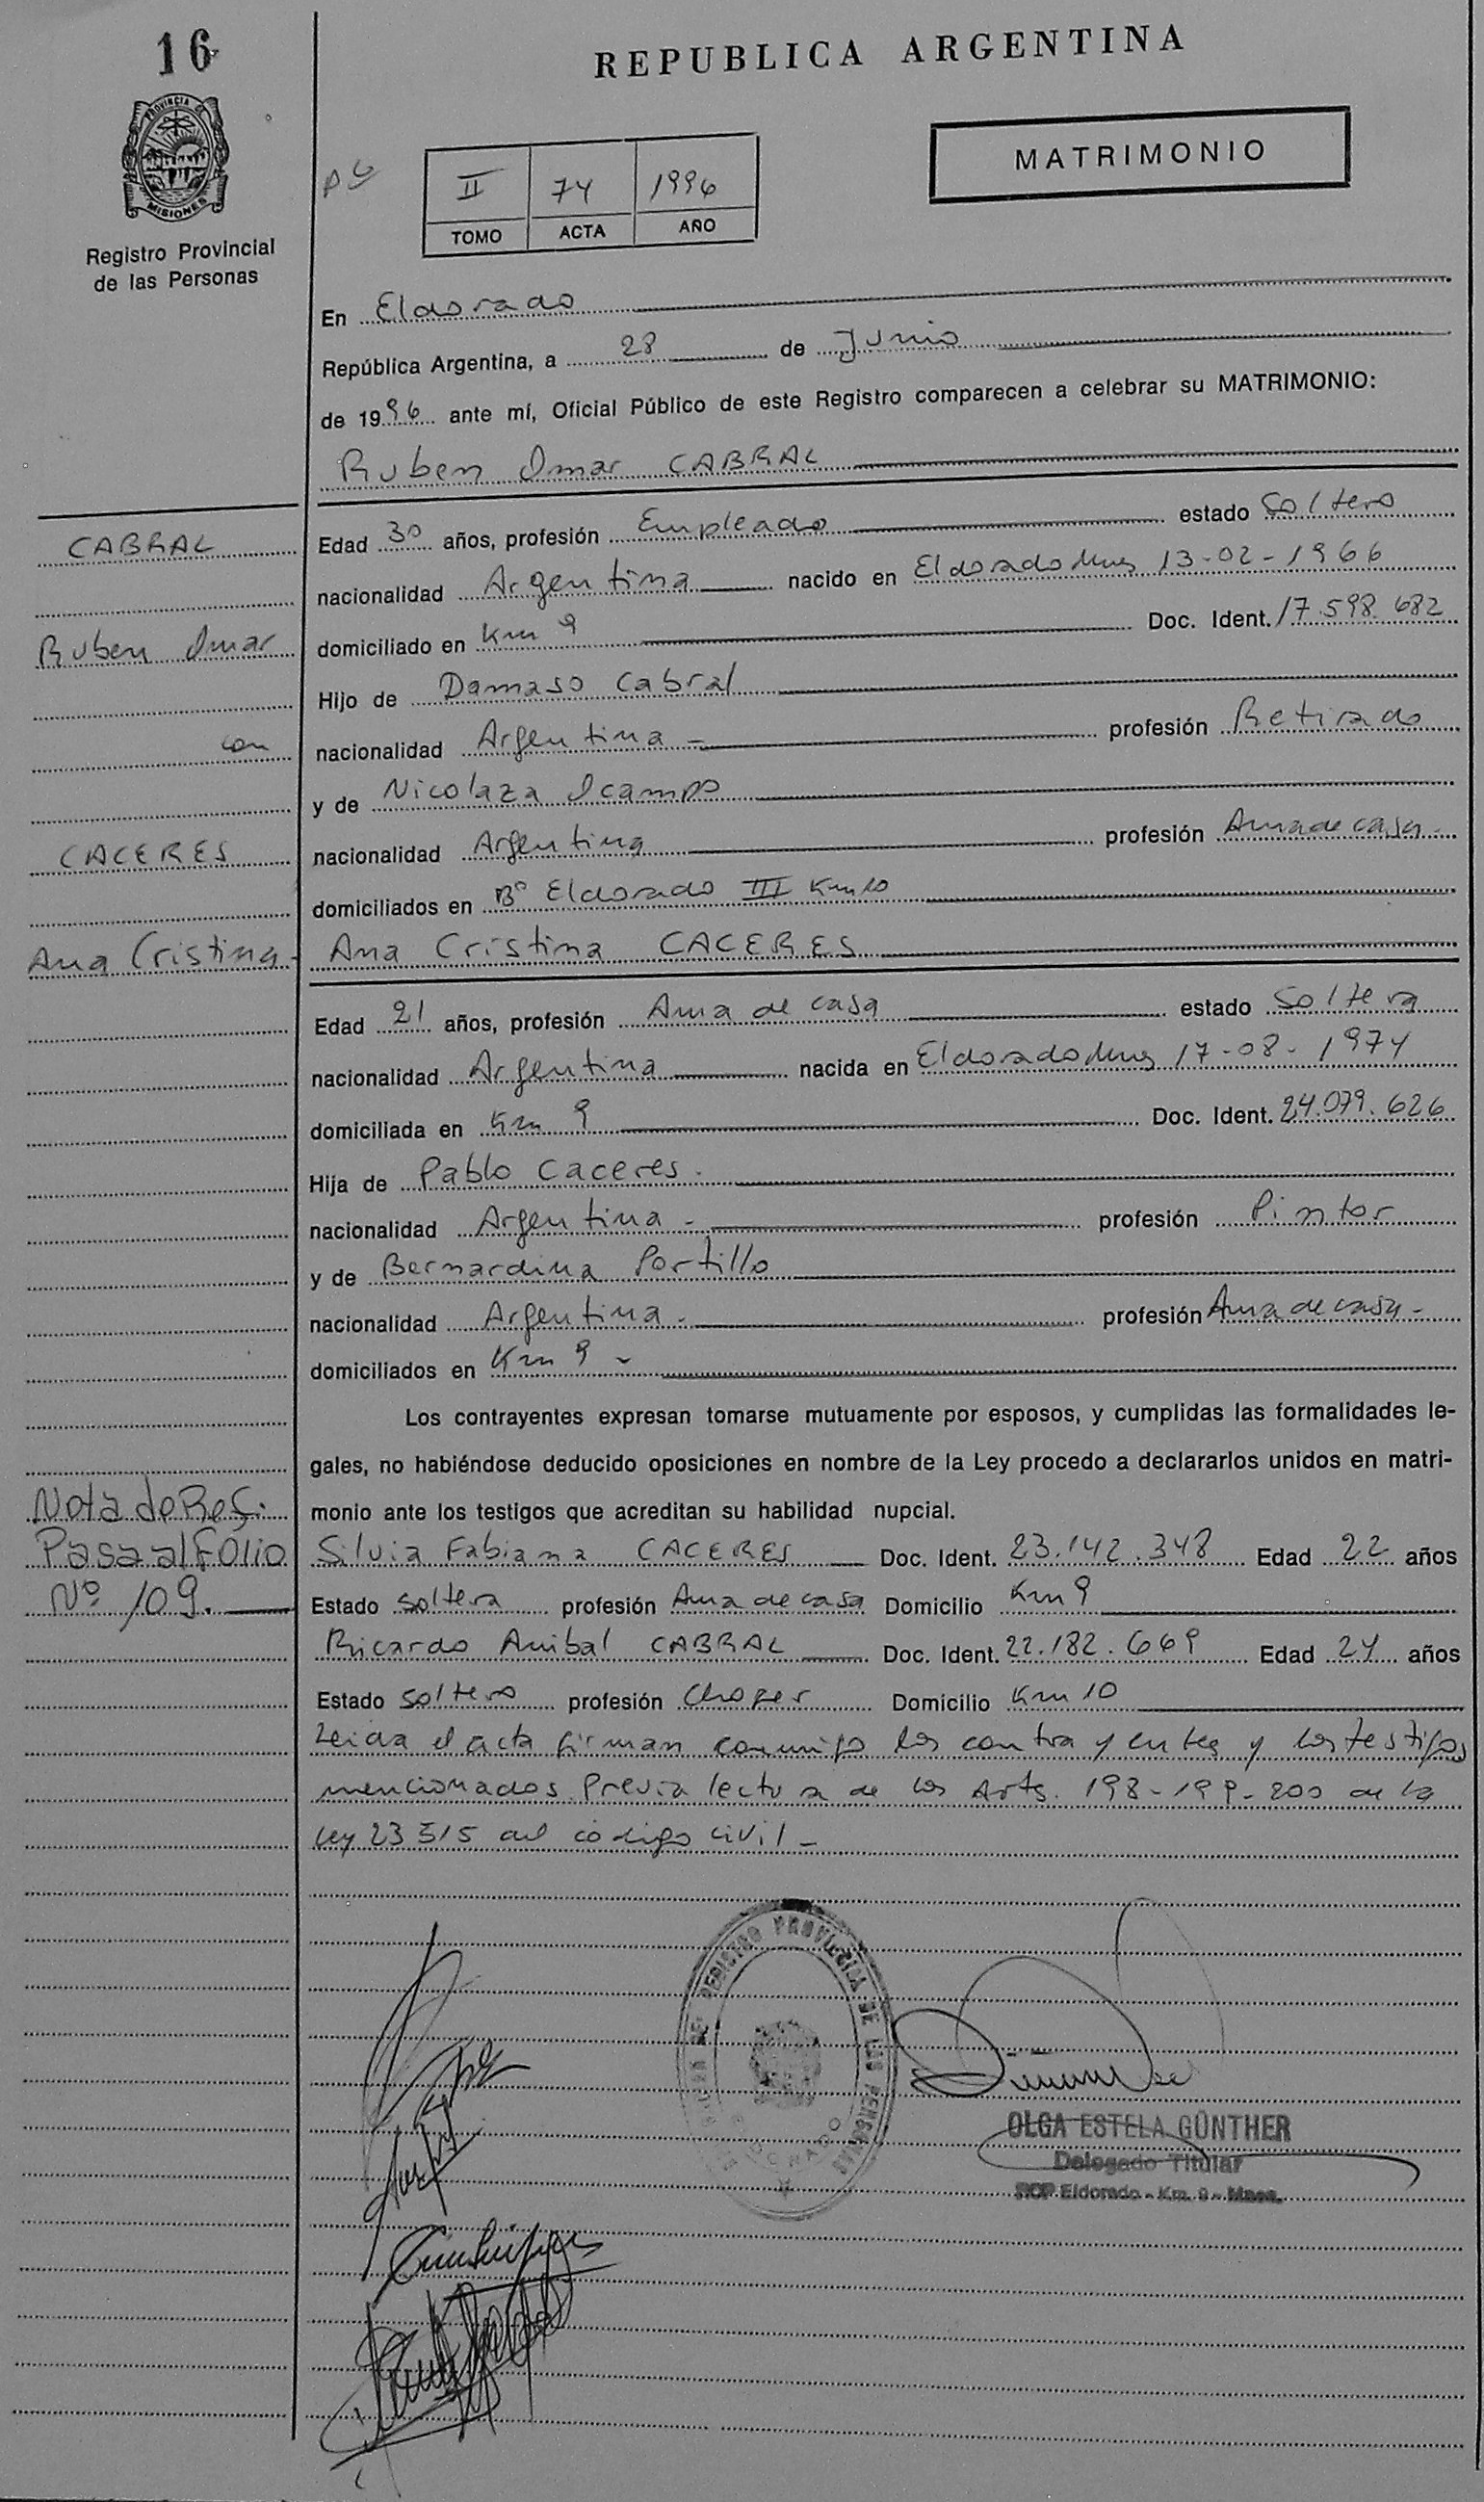 16
REPUBLICA ARGENTINA
PROVINCIA DE
MISIONES
MATRIMONIO
II 74 1996
TOMO ACTA AÑO
Registro Provincial
de las Personas
En Eldorado
República Argentina, a 28 de Junio
de 1996 ante mí, Oficial Público de este Registro comparecen a celebrar su MATRIMONIO:
Ruben Omar CABRAL
CABRAL
Ruben Omar
con
CACERES
Ana Cristina
Edad 30 años, profesión Empleado estado Soltero
nacionalidad Argentina nacido en Eldorado Mnes 13-02-1966
domiciliado en Km 9 Doc. Ident. 17.598.682
Hijo de Damaso Cabral
nacionalidad Argentina - profesión Retirado
y de Nicolaza Ocampo
nacionalidad Argentina profesión Ama de casa -
domiciliados en Bº Eldorado III Km 10
Ana Cristina CACERES
Edad 21 años, profesión Ama de casa estado Soltera
nacionalidad Argentina nacida en Eldorado Mnes 17-08-1974
domiciliada en Km 9 Doc. Ident. 24.079.626
Hija de Pablo Caceres.
nacionalidad Argentina - profesión Pintor
y de Bernardina Portillo
nacionalidad Argentina - profesión Ama de casa -
domiciliados en Km 9 -
Los contrayentes expresan tomarse mutuamente por esposos, y cumplidas las formalidades le-
gales, no habiéndose deducido oposiciones en nombre de la Ley procedo a declararlos unidos en matri-
monio ante los testigos que acreditan su habilidad nupcial.
Nota de Ref:
Pasa al Folio
Nº 109.
Silvia Fabiana CACERES Doc. Ident. 23.142.348 Edad 22 años
Estado soltera profesión Ama de casa Domicilio Km 9
Ricardo Anibal CABRAL Doc. Ident. 22.182.669 Edad 24 años
Estado soltero profesión Chofer Domicilio Km 10
Leida el acta firman conmigo los contrayentes y los testigos
mencionados. Previa lectura de los Arts. 198-199-200 de la
ley 23515 del código civil -
REGISTRO PROVINCIAL DE LAS PERSONAS
OLGA ESTELA GÜNTHER
Delegado Titular
RCP Eldorado - Km. 9 - Mnes.